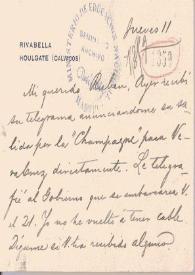 Jueves 11
RIVABELLA
HOULGATE (CALVADOS)
MINISTERIO DE EDUCACION NACIONAL
ARCHIVO
Mi querido Rubén, Ayer recibí
su telegrama anunciándome su sa-
lida por la "Champagne" para Ve-
racruz, directamente. Le telegra-
fié al Gobierno que se embarcaría V.
el 21. Yo no he vuelto a tener cable.
Dígame si V. ha recibido alguno.